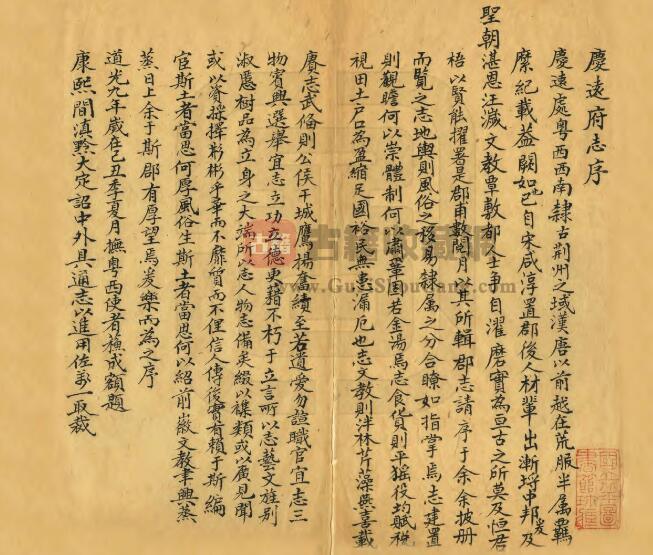 慶遠府志序
慶遠處粵西西南隸古荆州之域漢唐以前越在荒服半屬羈
縻紀載益闕如也自宋咸淳置郡後人材輩出漸埒中邦爰及
聖朝湛恩汪濊文教覃敷都人士爭自濯磨實為亘古之所莫及恒君
梧以賢能擢署是郡甫數閱月其所輯郡志請序于余余披冊
而覽之志地輿則風俗之移易隸屬之分合瞭如指掌焉志建置
則觀瞻何以崇體制何以肅鞏固若金湯焉志食貨則平徭役均賦稅
視田土戶口為盈縮足國裕民無患漏卮也志文教則泮林芹藻燕喜載
賡志武偹則公侯干城鷹揚奮績至若遺愛勿諼職官宜志三
物賓興選舉宜志立功立德更藉不朽于立言所以志藝文旌別
淑慝樹品為立身之大端所以志人物志備矣綴以襍類或以廣見聞
或以資採擇彬彬乎華而不靡質而不俚信今傳後實有賴于斯編
宦斯土者當思何厚風俗生斯土者當思何以紹前徽文教聿興蒸
蒸日上余于斯郡有厚望焉爰樂而為之序
道光九年歲在己丑季夏月撫粵西使者穌成額題
康熙間滇黔大定詔中外具通志以進用佐乙一取裁
古籍收藏网
www.GuJiShouCang.com